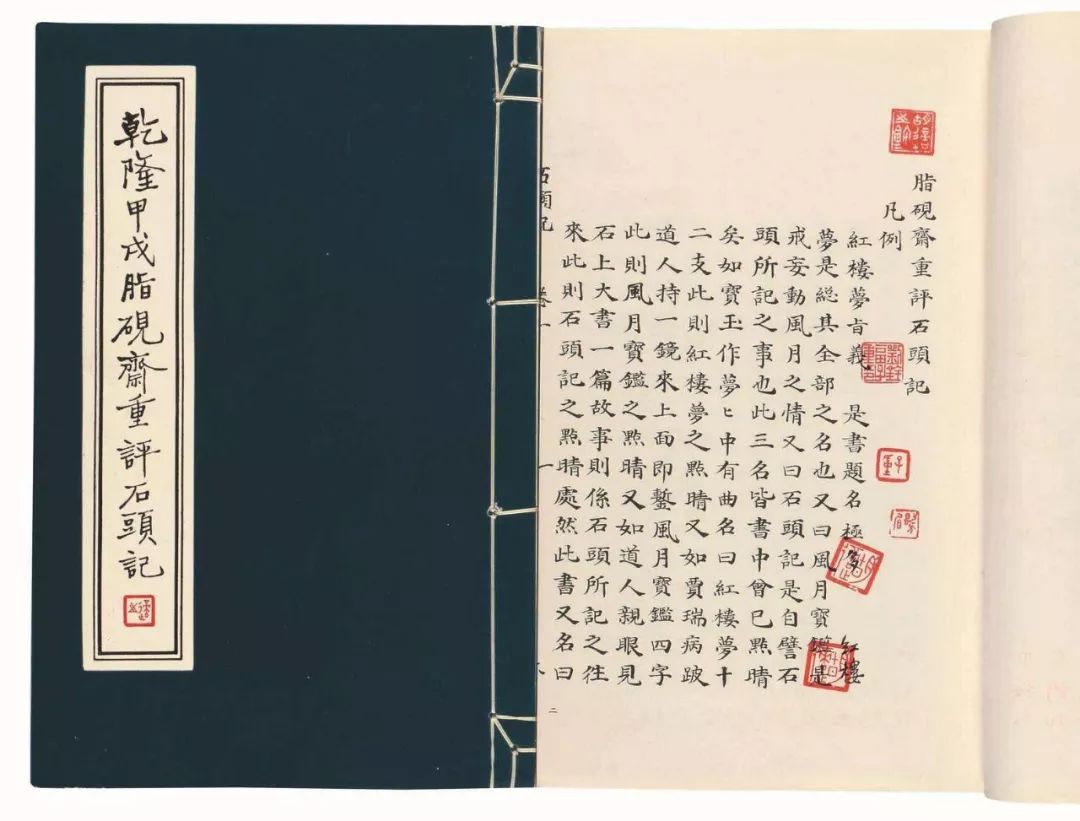 乾隆甲戌脂硯齋重評石頭記
脂硯齋重評石頭記
凡例
紅樓夢旨義 是書題名極多 紅樓
夢是総其全部之名也又曰風月寶鑑是
戒妄動風月之情又曰石頭記是自譬石
頭所記之事也此三名皆書中曾已點睛
矣如寶玉作夢ヒ中有曲名曰紅樓夢十
二支此則紅樓夢之點睛又如賈瑞病跛
道人持一鏡來上面即鏨風月寶鑑四字
此則風月寶鑑之點睛又如道人親眼見
石上大書一篇故事則係石頭所記之往
來此則石頭記之點睛處然此書又名曰
石頭記 卷一 一
二
子重